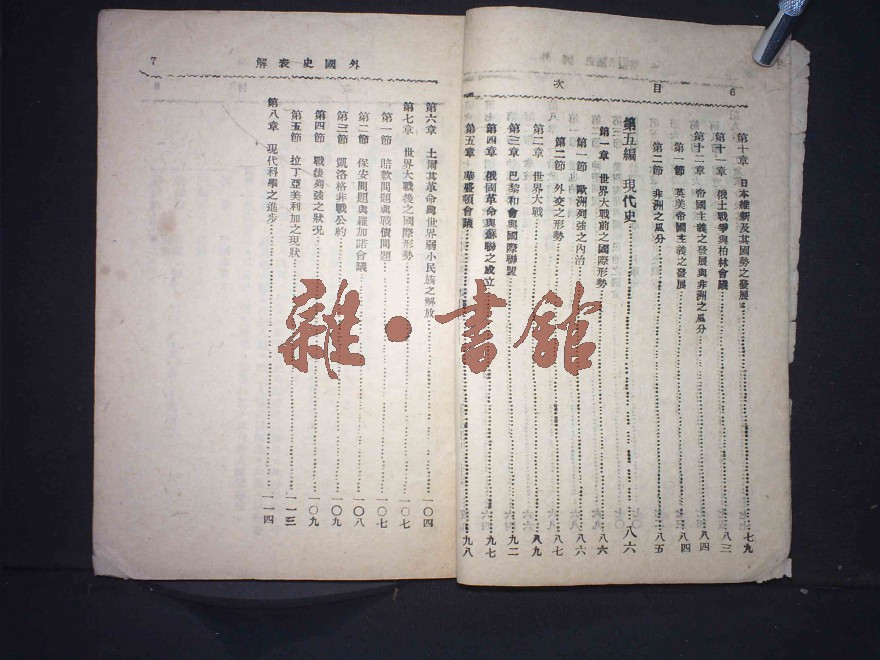 6
目次
第十章 日本維新及其國勢之發展 七九
第十一章 俄土戰爭與柏林會議 八三
第十二章 帝國主義之發展與非洲之瓜分 八四
第一節 英美帝國主義之發展 八四
第二節 非洲之瓜分 八五
第五編 現代史 八六
第一章 世界大戰前之國際形勢 八六
第一節 歐洲列強之內治 八六
第二節 外交之形勢 八七
第二章 世界大戰 八九
第三章 巴黎和會與國際聯盟 九二
第四章 俄國革命與蘇聯之成立 九七
第五章 華盛頓會議 九八
外國史表解
7
第六章 土爾其革命與世界弱小民族之解放 一〇四
第七章 世界大戰後之國際形勢 一〇七
第一節 賠款問題與戰債問題 一〇七
第二節 保安問題與羅加諾會議 一〇八
第三節 凱洛格非戰公約 一〇九
第四節 戰後列強之狀况 一〇九
第五節 拉丁亞美利加之現狀 一一三
第八章 現代科學之進步 一一四
雜·書館